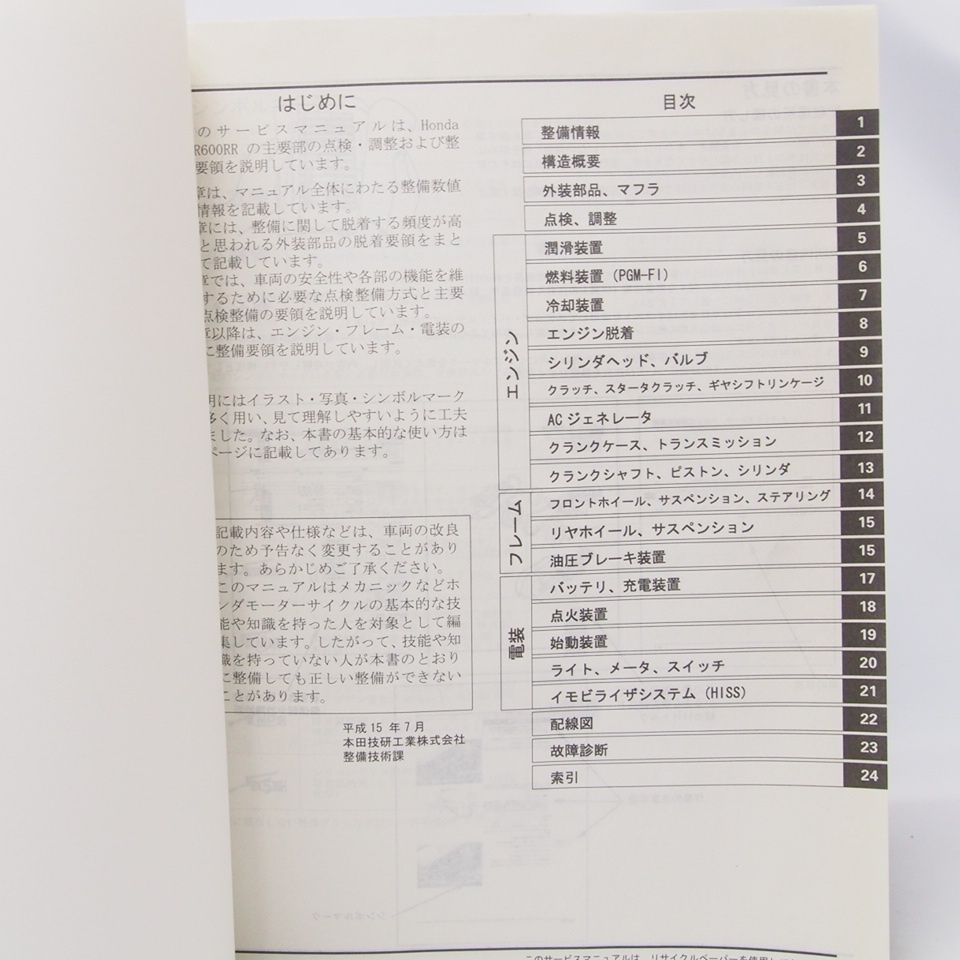 はじめに
のサービスマニュアルは、Honda
R600RR の主要部の点検・調整および整
要領を説明しています。
章は、マニュアル全体にわたる整備数値
情報を記載しています。
章には、整備に関して脱着する頻度が高
と思われる外装部品の脱着要領をまと
て記載しています。
章では、車両の安全性や各部の機能を維
するために必要な点検整備方式と主要
点検整備の要領を説明しています。
章以降は、エンジン・フレーム・電装の
に整備要領を説明しています。
明にはイラスト・写真・シンボルマーク
多く用い、見て理解しやすいように工夫
ました。なお、本書の基本的な使い方は
ページに記載してあります。
記載内容や仕様などは、車両の改良
のため予告なく変更することがあり
ます。あらかじめご了承ください。
このマニュアルはメカニックなどホ
ンダモーターサイクルの基本的な技
能や知識を持った人を対象として編
集しています。したがって、技能や知
識を持っていない人が本書のとおり
に整備しても正しい整備ができない
ことがあります。
平成 15 年 7 月
本田技研工業株式会社
整備技術課
目次
整備情報 1
構造概要 2
外装部品、マフラ 3
点検、調整 4
エンジン
潤滑装置 5
燃料装置 (PGM-FI) 6
冷却装置 7
エンジン脱着 8
シリンダヘッド、バルブ 9
クラッチ、スタータクラッチ、ギヤシフトリンケージ 10
AC ジェネレータ 11
クランクケース、トランスミッション 12
クランクシャフト、ピストン、シリンダ 13
フレーム
フロントホイール、サスペンション、ステアリング 14
リヤホイール、サスペンション 15
油圧ブレーキ装置 15
電装
バッテリ、充電装置 17
点火装置 18
始動装置 19
ライト、メータ、スイッチ 20
イモビライザシステム (HISS) 21
配線図 22
故障診断 23
索引 24
このサービスマニュアルは、リサイクルペーパーを使用して